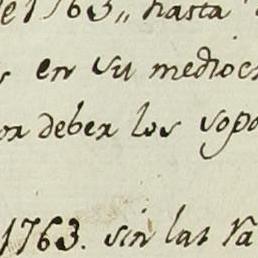 e 1763,, hasta
s en su medioc
or deber los sopo
1763. sin las ra